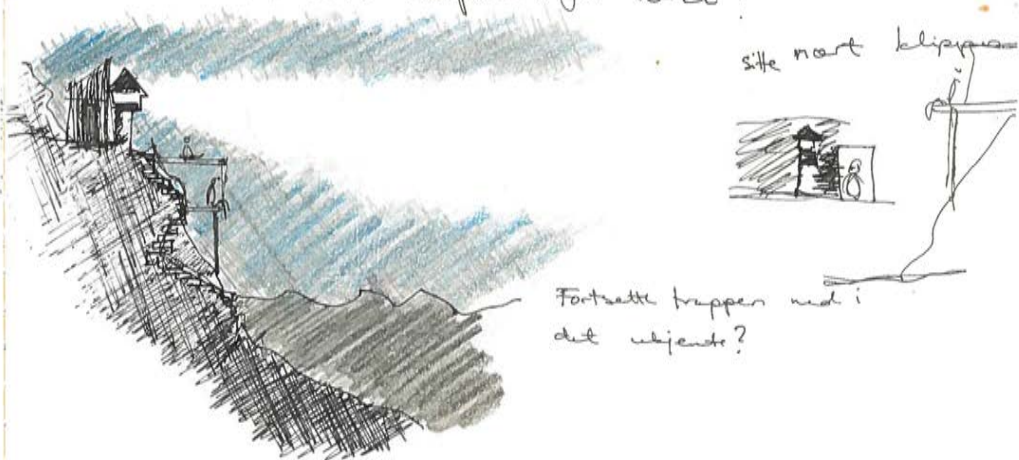 sitte nært klippen
Fortsette trappen ned i
det ukjente?